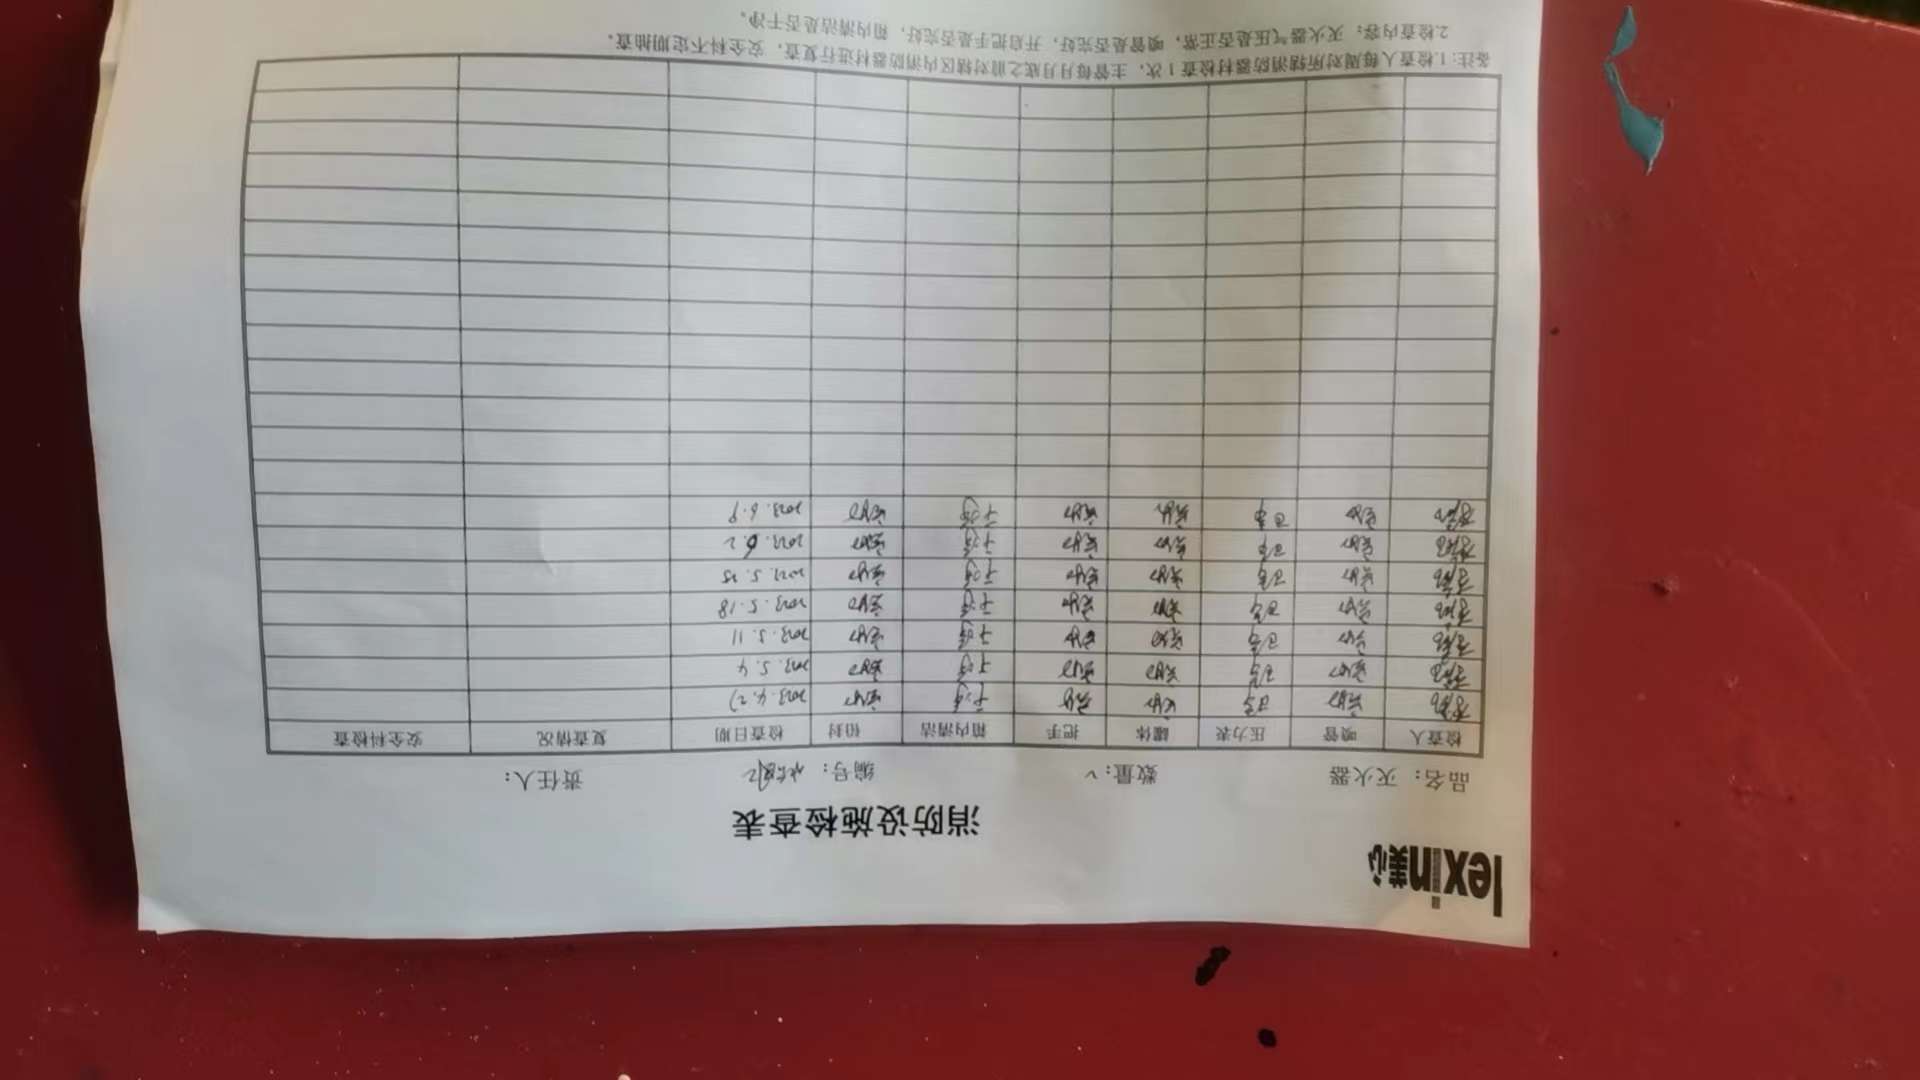 lexin 美心
消防设施检查表
品名：灭火器 数量： 编号： 责任人：
检查人 喷管 压力表 罐体 把手 箱内清洁 铅封 检查日期 复查情况 安全科检查
完好 正常 完好 完好 干净 完好 2023.4.27
完好 正常 完好 完好 干净 完好 2023.5.4
完好 正常 完好 完好 干净 完好 2023.5.11
完好 正常 完好 完好 干净 完好 2023.5.18
完好 正常 完好 完好 干净 完好 2023.5.25
完好 正常 完好 完好 干净 完好 2023.6.2
完好 正常 完好 完好 干净 完好 2023.6.9
备注：1.检查人每周对所辖消防器材检查1次，主管每月月底之前对辖区内消防器材进行复查，安全科不定期抽查。
2.检查内容：灭火器气压是否正常，喷管是否完好，开启把手是否完好，箱内清洁是否干净。